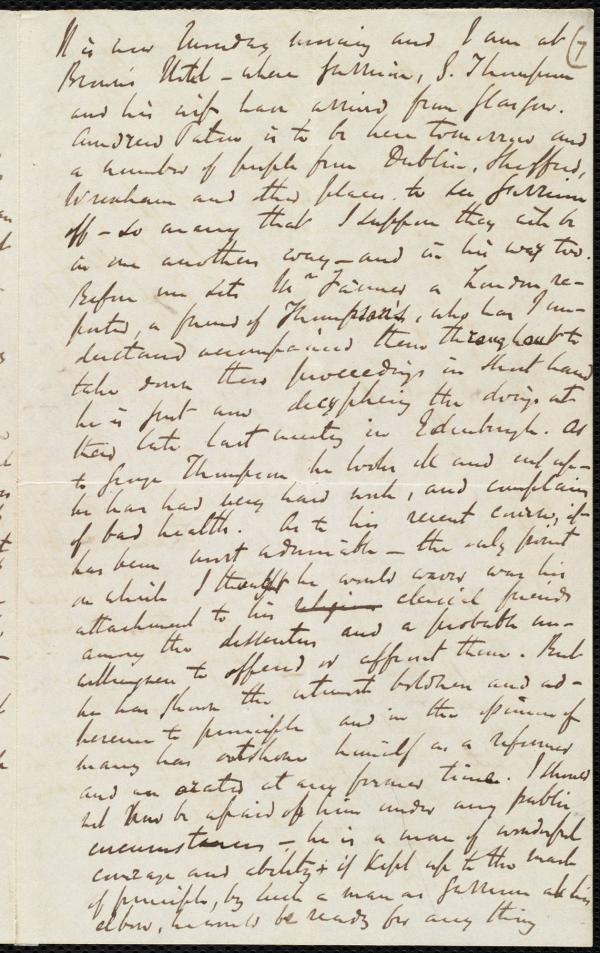 It is now Tuesday morning and I am at (7
Brown's Hotel – where Garrison, G. Thompson
and his wife have arrived from Glasgow.
Andrew Paton is to be here tomorrow and
a number of people from Dublin, Sheffield,
Wrexham and other places to see Garrison
off – so many that I suppose they will be
in one anothers way – and in his way too.
Before me sits Mr Farmer a London re-
porter, a friend of Thompson's, who has I un-
derstand accompanied them throughout to
take down their proceedings in short hand
he is just now decyphering the doings at
their late last meeting in Edinburgh. As
to George Thompson he looks ill and
he has had very hard work, and complains
of bad health. As to his recent course, it
has been most admirable – the only point
on which I thought he would waver was his
attachment to his religious clerical friends
among the dissenters and a probable un-
willingness to offend or affront them. But
he has shown the utmost boldness and ad-
herence to principle and in the opinion of
many has outshone himself as a reformer
and an orator at any former time. I should
not now be afraid of him under any public
circumstances – he is a man of wonderful
courage and ability & if kept up to the mark
of principle, by such a man as Garrison at his
elbow, he would be ready for any thing